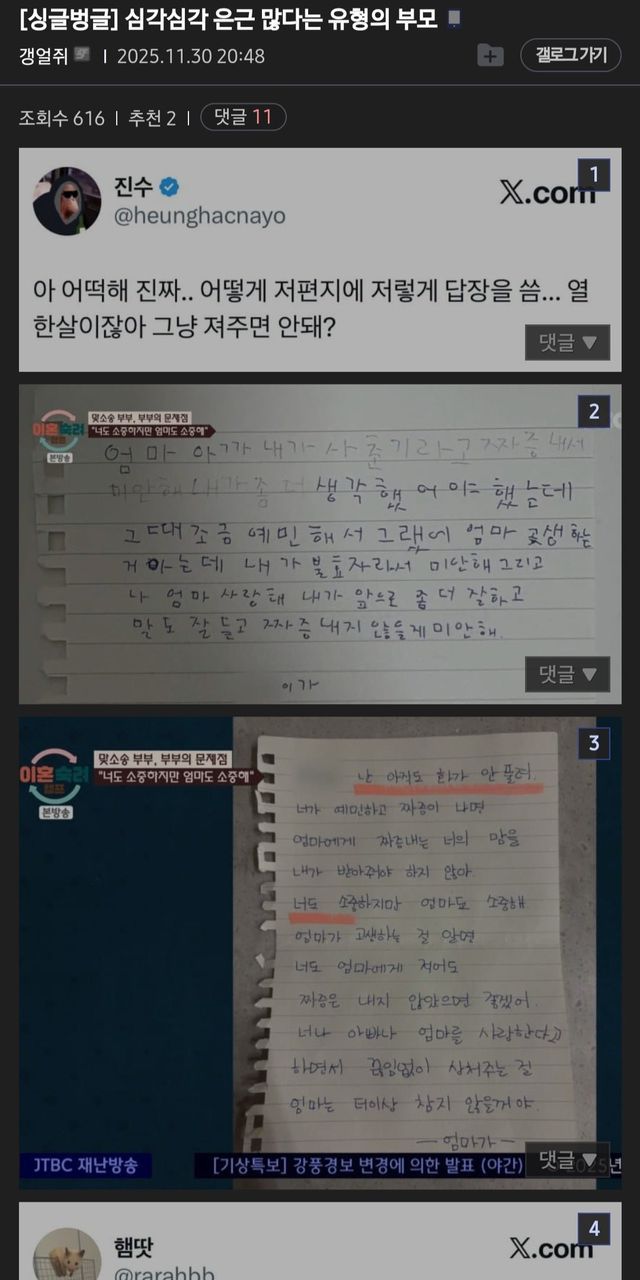 [싱글벙글] 심각심각 은근 많다는 유형의 부모
갱얼쥐 | 2025.11.30 20:48
갤로그 가기
조회수 616 | 추천 2 | 댓글 11
1
진수
@heunghacnayo
X.com
아 어떡해 진짜.. 어떻게 저편지에 저렇게 답장을 씀... 열
한살이잖아 그냥 져주면 안돼?
댓글 ▼
2
이혼숙려
캠프
본방송
맞소송 부부, 부부의 문제점
"너도 소중하지만 엄마도 소중해"
엄마 아까 내가 사춘기라고 짜증내서
미안해 내가 좀 더 생각했어야 했는데
그때 조금 예민해서 그랬어 엄마 고생하는
거 아는데 내가 불효자라서 미안해 그리고
나 엄마 사랑해 내가 앞으로 좀 더 잘하고
말도 잘 듣고 짜증내지 않을게 미안해.
이가
댓글 ▼
3
이혼숙려
캠프
본방송
맞소송 부부, 부부의 문제점
"너도 소중하지만 엄마도 소중해"
난 아직도 화가 안 풀려.
너가 예민하고 짜증이 나면
엄마에게 짜증내는 너의 맘을
내가 받아줘야 하지 않아.
너도 소중하지만 엄마도 소중해
엄마가 고생하는 걸 알면
너도 엄마에게 적어도
짜증은 내지 않았으면 좋겠어.
너나 아빠나 엄마를 사랑한다고
하면서 끊임없이 상처주는 걸
엄마는 더이상 참지 않을꺼야.
- 엄마가 -
JTBC 재난방송
[기상특보] 강풍경보 변경에 의한 발표 (야간)
댓글 ▼
4
햄땃
@rarahbb
X.com